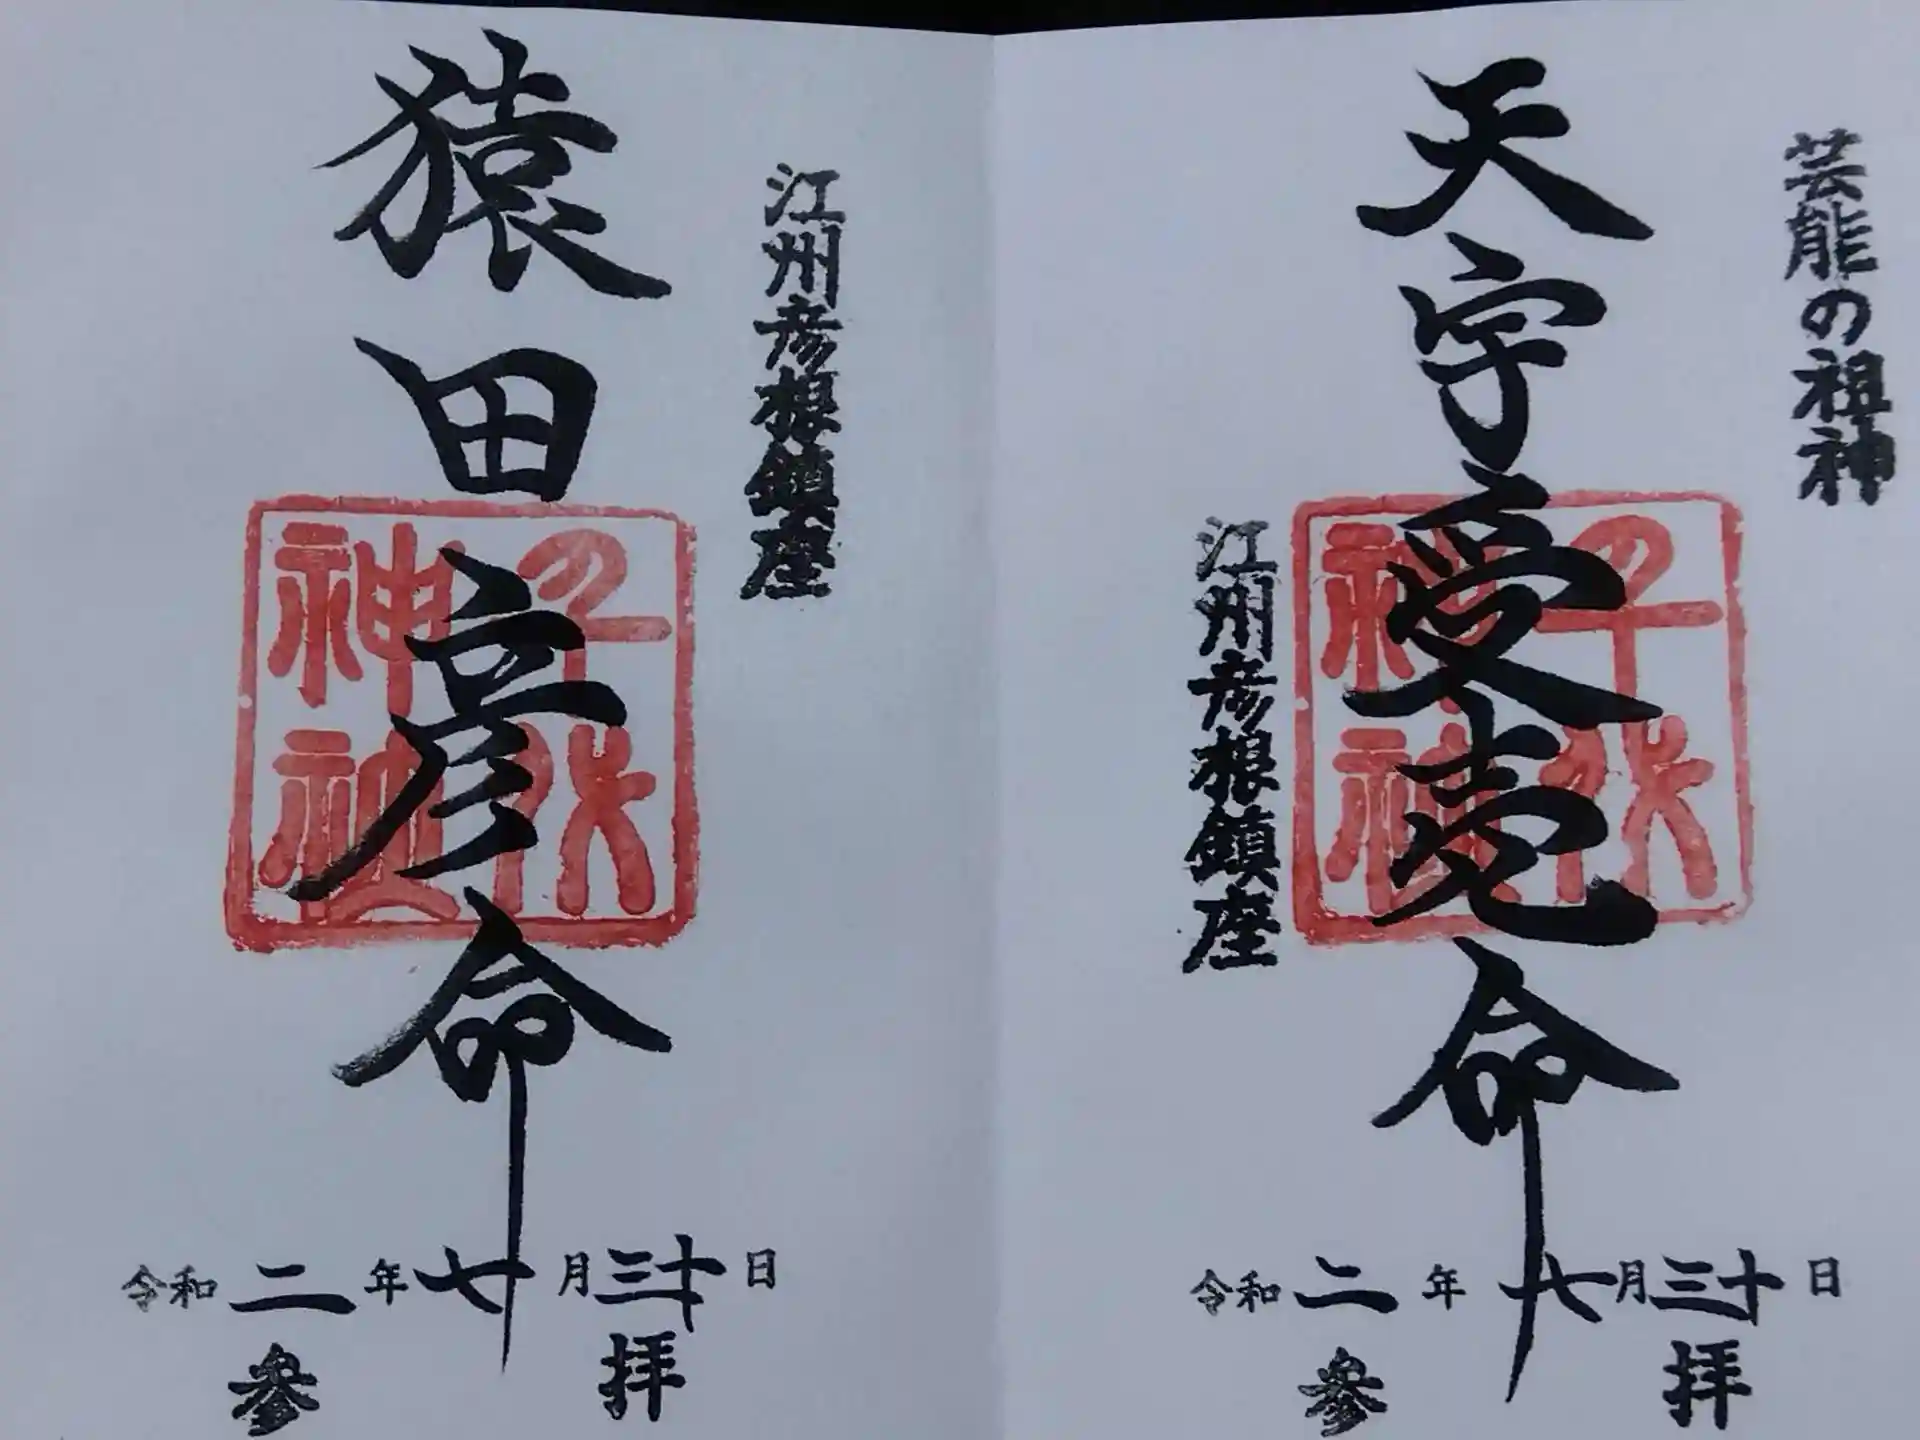 芸能の祖神
天宇受売命
千代
神社
江州彦根鎮座
令和二年七月三十日
参拝
江州彦根鎮座
猿田彦命
千代
神社
令和二年七月三十日
参拝